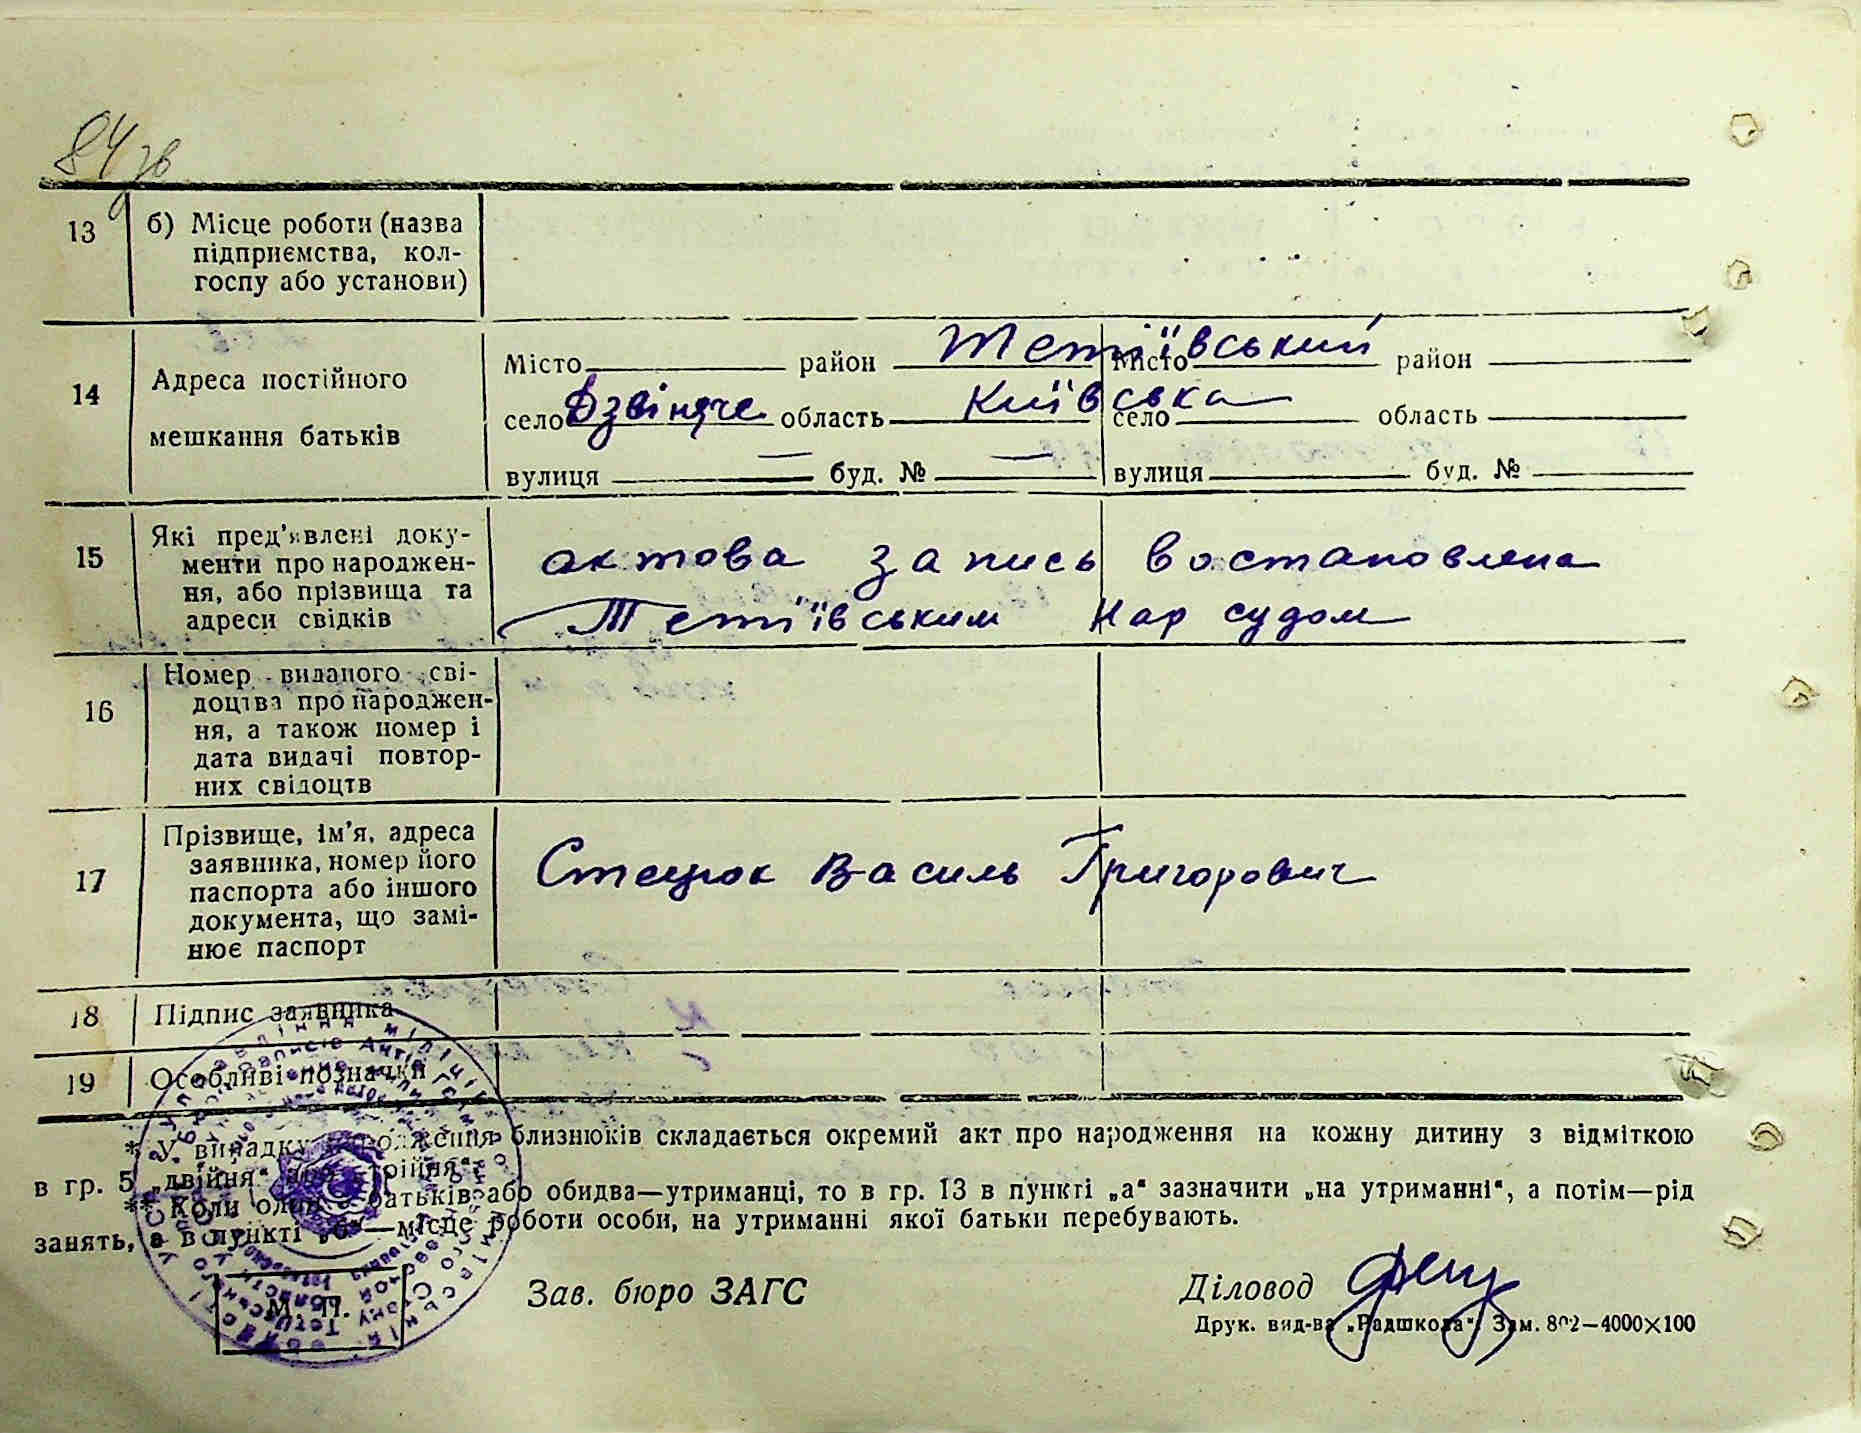 84 зв
13 б) Місце роботи (назва
підприємства, кол-
госпу або установи)
14 Адреса постійного
мешкання батьків
Місто район Тетіївський Місто район
село Дзвіняче область Київська село область
вулиця — буд. № — вулиця буд. №
15 Які пред'явлені доку-
менти про народжен-
ня, або прізвища та
адреси свідків
актова запись востановлена
Тетіївським Нар судом
16 Номер виданого сві-
доцтва про народжен-
ня, а також номер і
дата видачі повтор-
них свідоцтв
17 Прізвище, ім'я, адреса
заявника, номер його
паспорта або іншого
документа, що замі-
нює паспорт
Стецюк Василь Григорович
18 Підпис заявника
19 Особливі позначки
* У випадку народження близнюків складається окремий акт про народження на кожну дитину з відміткою
в гр. 5 „двійня“ або „трійня“.
** Коли один з батьків або обидва—утриманці, то в гр. 13 в пункті „а“ зазначити „на утриманні“, а потім—рід
занять, а в пункті „б“—місце роботи особи, на утриманні якої батьки перебувають.
М. П.
Зав. бюро ЗАГС
Діловод
Друк. вид-ва „Радшкола“. Зам. 802—4000×100